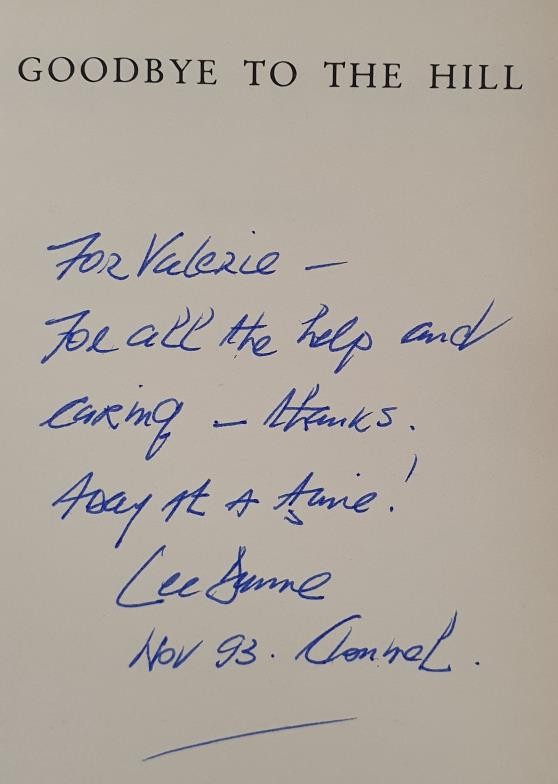 GOODBYE TO THE HILL
For Valerie —
For all the help and
caring — thanks.
A day at a time!
Lee Dunne
Nov 93. Clonmel.